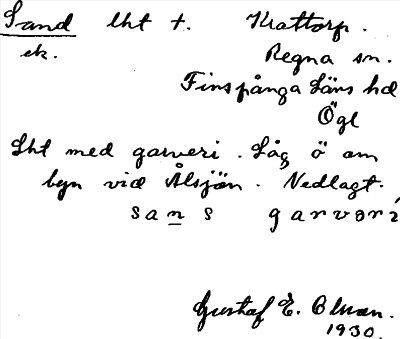 Sand lht t. Krattorp.
ek. Regna sn.
Finspånga Läns hd
Ögl
Lht med garveri. Låg ö om
byn vid Ålsjön. Nedlagt.
sans garvəri
Gustaf E. Olman.
1930.